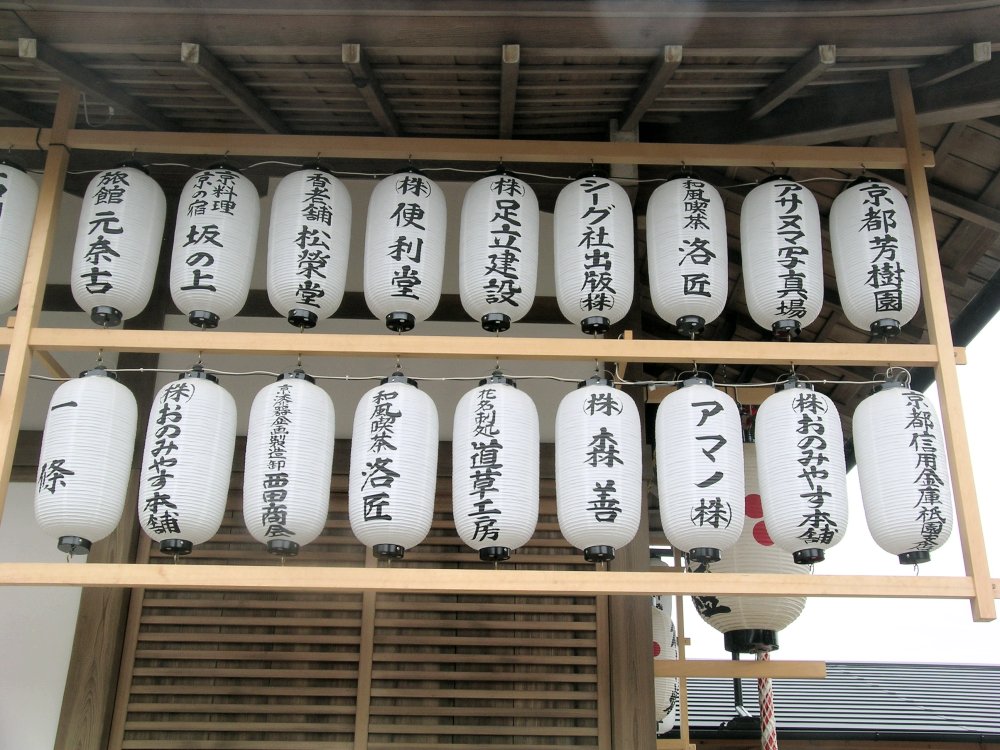 旅館 元奈古
京料理
京の宿
坂の上
香老舗 松榮堂
㈱便利堂
㈱足立建設
シーグ社出版㈱
和風喫茶 洛匠
アサヌマ写真場
京都芳樹園
一條
㈱おのみやす本舗
京漆器企画製造卸 西田商店
和風喫茶 洛匠
花名刺処 道草工房
㈱森善
アマノ㈱
㈱おのみやす本舗
京都信用金庫祇園支店